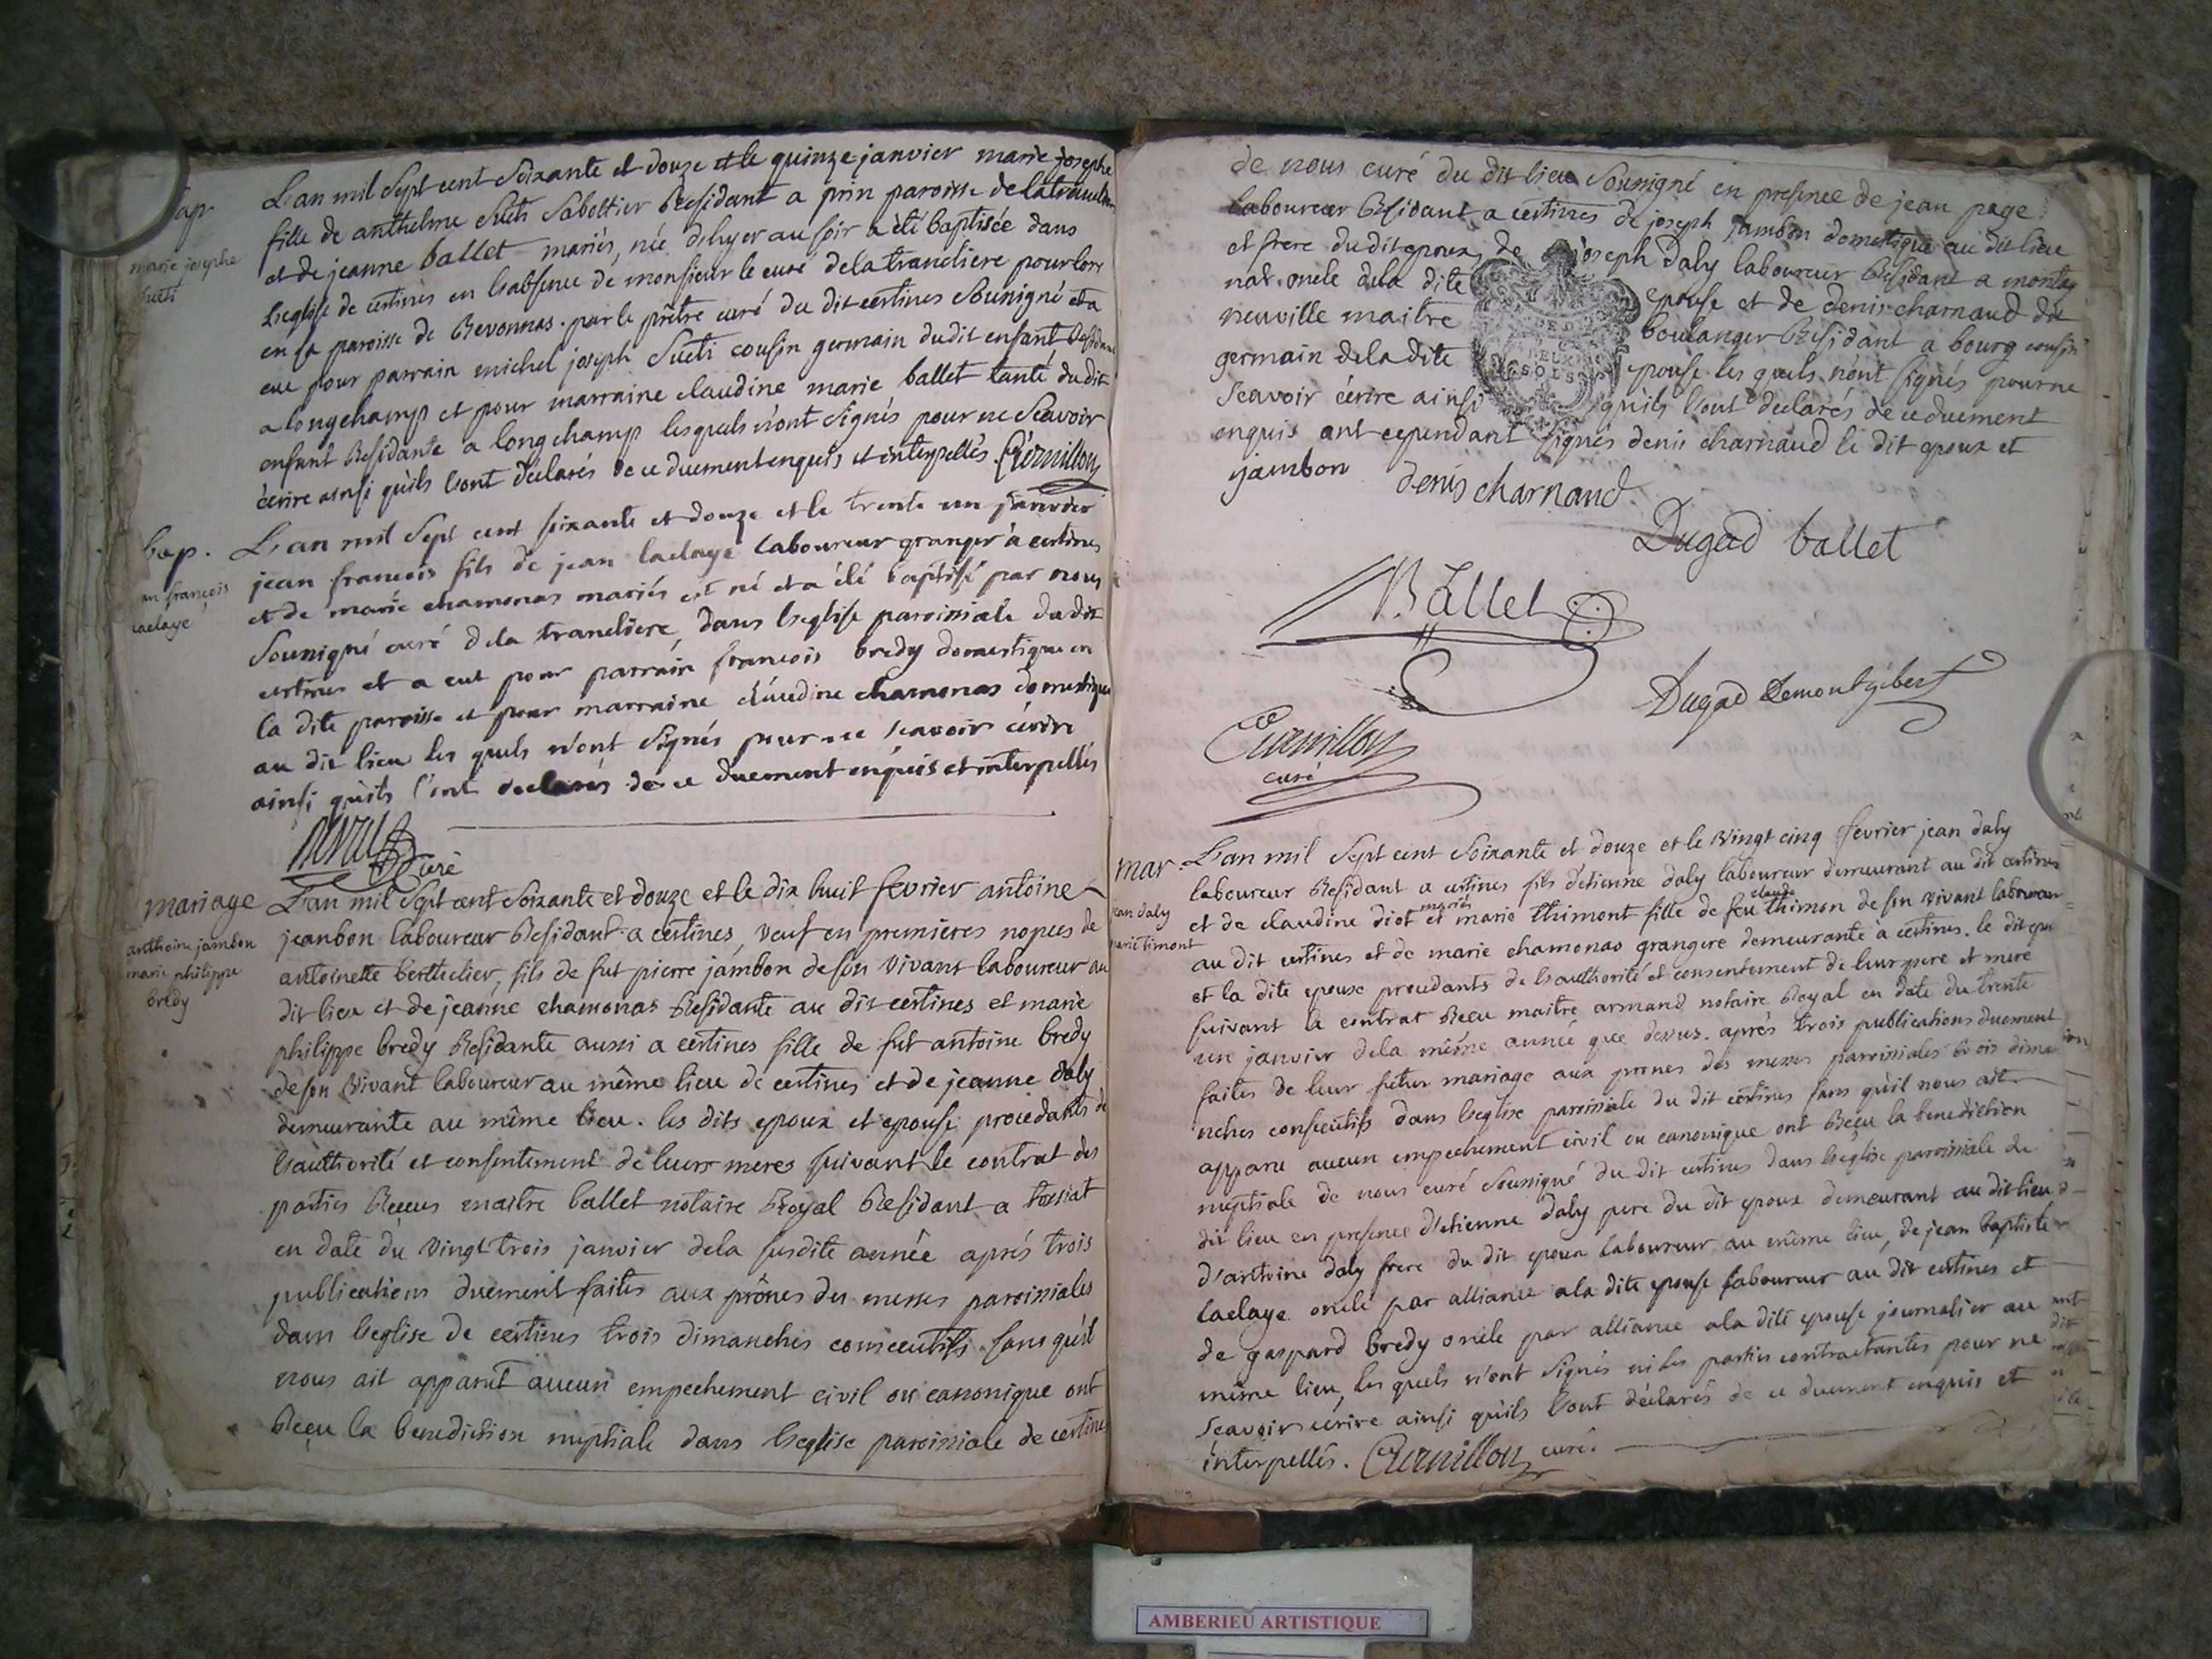 bap.
marie josephe
sueti
L'an mil sept cent soixante et douze et le quinze janvier marie josephe
fille de anthelme sueti sabottier Residant a prin paroisse de la tranclie
et de jeanne ballet mariés, née d'hyer au soir a été baptisée dans
l'eglise de certines en l'absence de monsieur le curé de la trancliere pour lors
en sa paroisse de Revonnas. par le prêtre curé du dit certines soussigné et a
eue pour parrain michel joseph sueti cousin germain du dit enfant Residant
a longchamp et pour marraine claudine marie ballet tante du dit
enfant Residante a longchamp lesquels n'ont signés pour ne scavoir
écrire ainsi qu'ils l'ont declarés de ce duement enquis et interpellés.
bap.
an francois
laclaye
L'an mil sept cent soixante et douze et le trente un janvier
jean francois fils de jean laclaye laboureur granger à certines
et de marie chamonas mariés est né et a été baptisé par nous
soussigné curé de la trancliere, dans l'eglise paroissiale du dit
certines et a eut pour parrain francois bredy domestique en
la dite paroisse et pour marraine claudine chamonas domestique
au dit lieu les quels n'ont signés pour ne scavoir écrire
ainsi qu'ils l'ont declarés de ce duement enquis et interpellés
curé
mariage
anthoine jambon
marie philippe
bredy
L'an mil sept cent soixante et douze et le dix huit fevrier antoine
jeanbon laboureur Residant a certines, veuf en premieres nopces de
antoinette berthelier, fils de fut pierre jambon de son vivant laboureur au
dit lieu et de jeanne chamonas Residante au dit certines et marie
philippe bredy Residante aussi a certines fille de fut antoine bredy
de son vivant laboureur au même lieu de certines et de jeanne daly
demeurante au même lieu. les dits epoux et epouse procedants de
l'authorité et consentement de leurs meres suivant le contrat des
parties Receus maitre ballet notaire Royal Residant a tossiat
en date du vingt trois janvier de la susdite année aprés trois
publications duement faites aux prônes des messes paroissiales
dans l'eglise de certines trois dimanches consecutifs sans qu'il
nous ait apparut aucun empechement civil ou canonique ont
Reçu la benediction nuptiale dans l'eglise paroissiale de certines
de nous curé du dit lieu soussigné en presence de jean page
laboureur Residant a certines de joseph jambon domestique au dit lieu
et frere du dit epoux, de joseph daly laboureur Residant a montag
nat. oncle de la dite epouse et de denis charnaud de
neuville maitre boulanger Residant a bourg cousin
germain de la dite epouse. les quels n'ont signés pour ne
scavoir écrire ainsi qu'ils l'ont declarés de ce duement
enquis ont cependant signés denis charnaud le dit epoux et
jambon
denis charnaud
Dugad ballet
Ballet
Dugad Demontgibert
curé
mar.
jean daly
marie timont
L'an mil sept cent soixante et douze et le vingt cinq fevrier jean daly
laboureur Residant a certines fils d'etienne daly laboureur demeurant au dit certines
et de claudine diot mariés et marie thimont fille de feu claude thimon de son vivant laboureur
au dit certines et de marie chamonas grangere demeurante a certines. le dit epoux
et la dite epouse procedants de l'authorité et consentement de leur pere et mere
suivant le contrat Recu maitre armand notaire Royal en date du trente
un janvier de la même année que dessus. aprés trois publications duement
faites de leur futur mariage aux prones des messes paroissiales trois dima
nches consecutifs dans l'eglise paroissiale du dit certines sans qu'il nous ait
apparu aucun empechement civil ou canonique ont Reçu la benediction
nuptiale de nous curé soussigné du dit certines dans l'eglise paroissiale du
dit lieu en presence d'etienne daly pere du dit epoux demeurant au dit lieu
d'antoine daly frere du dit epoux laboureur au même lieu, de jean baptiste
laclaye oncle par alliance a la dite epouse laboureur au dit certines et
de gaspard bredy oncle par alliance a la dite epouse journalier au
même lieu, les quels n'ont signés ni les parties contractantes pour ne
scavoir écrire ainsi qu'ils l'ont déclarés de ce duement enquis et
interpellés. curé.
AMBERIEU ARTISTIQUE